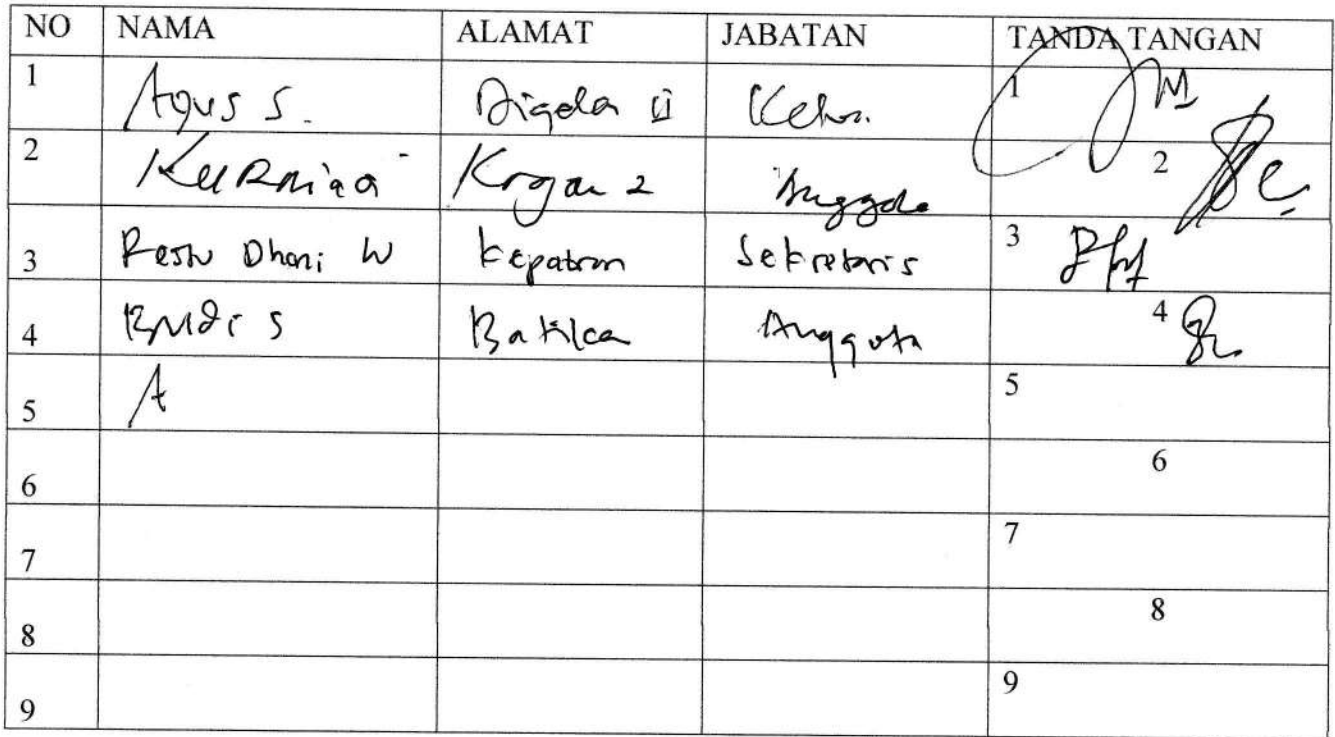 NO NAMA ALAMAT JABATAN TANDA TANGAN
1 Agus S. Digola II 1
2 Kogan 2 Anggota 2
3 Restu Dhani W Kepatran Sekretaris 3
4 Budi S Anggota 4
5 A 5
6 6
7 7
8 8
9 9